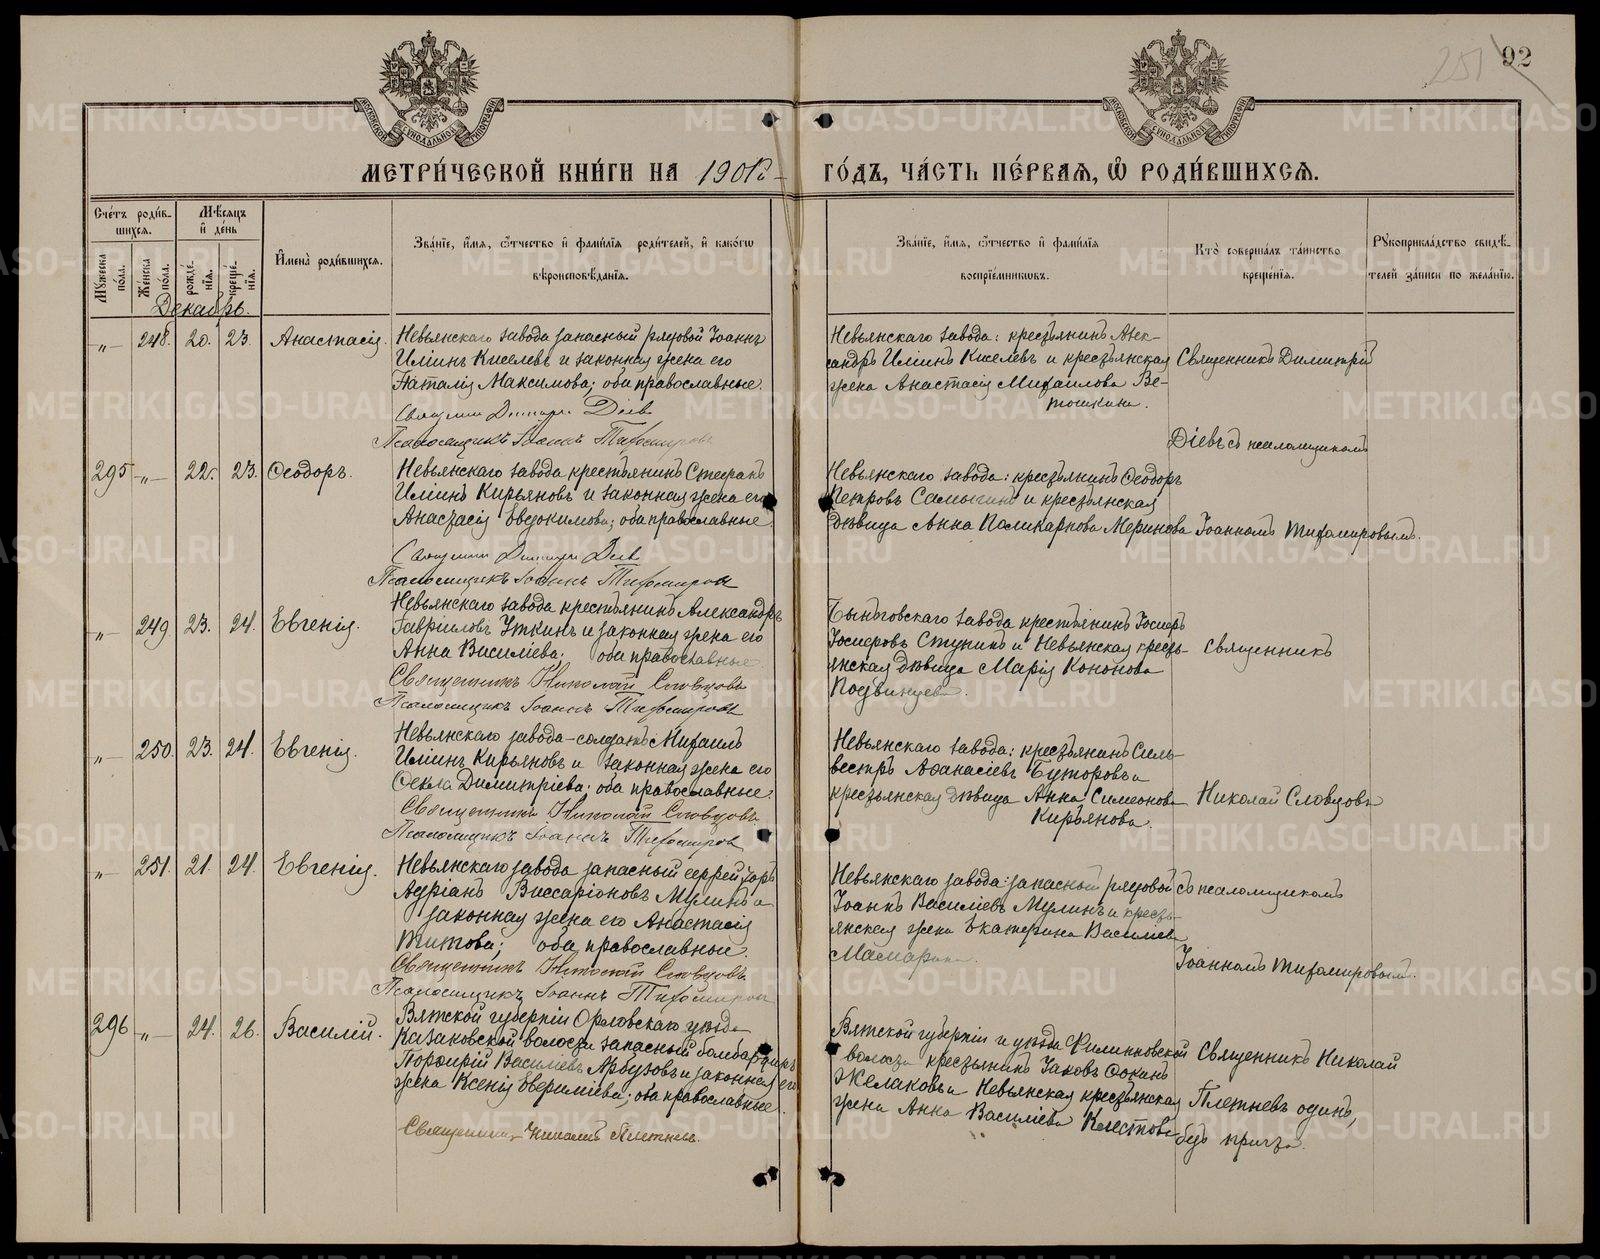 251 92
МОСКОВСКОЙ СѴНОДАЛЬНОЙ ТИПОГРАФІИ
МОСКОВСКОЙ СѴНОДАЛЬНОЙ ТИПОГРАФІИ
МЕТРИ́ЧЕСКОЙ КНИ́ГИ НА 1901
ГО́ДЪ, ЧА́СТЬ ПЕ́РВАѦ, Ѡ҆ РОДИ́ВШИХСѦ.
Сче́тъ роди́в-
шихсѧ.
Мѣ́сѧцъ
и҆ де́нь
Мꙋжеска
по́ла.
Же́нска
по́ла.
рожде́-
нїѧ.
креще́-
нїѧ.
И҆мена̀ роди́вшихсѧ.
Зва́нїе, и҆́мѧ, ѻ҆́тчество и҆ фами́лїѧ роди́телей, и҆ како́гѡ
вѣроисповѣ́данїѧ.
Зва́нїе, и҆́мѧ, ѻ҆́тчество и҆ фами́лїѧ
воспрїе́мникѡвъ.
Кто̀ соверша́лъ та́инство
креще́нїѧ.
Рꙋкоприкла́дство свидѣ́-
телей за́писи по жела́нїю.
Декабрь.
„— 248. 20. 23. Анастасія.
Невьянскаго завода запасный рядовой Іоаннъ
Иліинъ Киселевъ и законная жена его
Наталія Максимова; оба православные.
Священникъ Димитрій Діевъ
Псаломщикъ Іоаннъ Тихомировъ
Невьянскаго завода: крестьянинъ Алек-
сандръ Иліинъ Киселевъ и крестьянская
жена Анастасія Михаилова Ве-
тошкина.
Священникъ Димитрій
Діевъ съ псаломщикомъ
295 „— 22. 23. Ѳеодоръ.
Невьянскаго завода крестьянинъ Стефанъ
Иліинъ Кирьяновъ и законная жена его
Анастасія Евдокимова; оба православные
Священникъ Димитрій Діевъ
Псаломщикъ Іоаннъ Тихомировъ
Невьянскаго завода: крестьянинъ Ѳеодоръ
Петровъ и крестьянская
дѣвица Анна Поликарпова Меринова
Іоанномъ Тихомировымъ.
„— 249 23. 24. Евгенія.
Невьянскаго завода крестьянинъ Александръ
Гавріиловъ Уткинъ и законная жена его
Анна Василіева. оба православные.
Священникъ Николай Словцовъ
Псаломщикъ Іоаннъ Тихомировъ
Быньговскаго завода крестьянинъ Іосифъ
Іосифовъ и Невьянская кресть-
янская дѣвица Марія Кононова
Подвинцева.
Священникъ
„— 250. 23. 24. Евгенія.
Невьянскаго завода-солдатъ Михаилъ
Иліинъ Кирьяновъ и законная жена его
Ѳекла Димитріева; оба православные.
Священникъ Николай Словцовъ
Псаломщикъ Іоаннъ Тихомировъ
Невьянскаго завода: крестьянинъ Силь-
вестръ Аѳанасіевъ Буторовъ и
крестьянская дѣвица Анна Симеонова
Кирьянова.
Николай Словцовъ
„— 251. 21. 24. Евгенія.
Невьянскаго завода запасный
Адріанъ Виссаріоновъ Мулинъ и
законная жена его Анастасія
Титова; оба православные.
Священникъ Николай Словцовъ
Псаломщикъ Іоаннъ Тихомировъ
Невьянскаго завода: запасный рядовой
Іоаннъ Василіевъ Мулинъ и кресть-
янская жена Екатерина Василіева
съ псаломщикомъ
Іоанномъ Тихомировымъ.
296 „— 24. 26. Василій.
Вятской губерніи Орловскаго уѣзда
Казаковской волости запасный бомбардиръ
Порфирій Василіевъ Арбузовъ и законная его
жена Ксенія Евѳиміева; оба православные.
Священникъ Николай Плетневъ.
Вятской губерніи и уѣзда Филипповской
волости крестьянинъ Іаковъ Ѳокинъ
Желаковъ и Невьянская крестьянская
жена Анна Василіева
Священникъ Николай
Плетневъ одинъ,
безъ причта.
METRIKI.GASO-URAL.RU